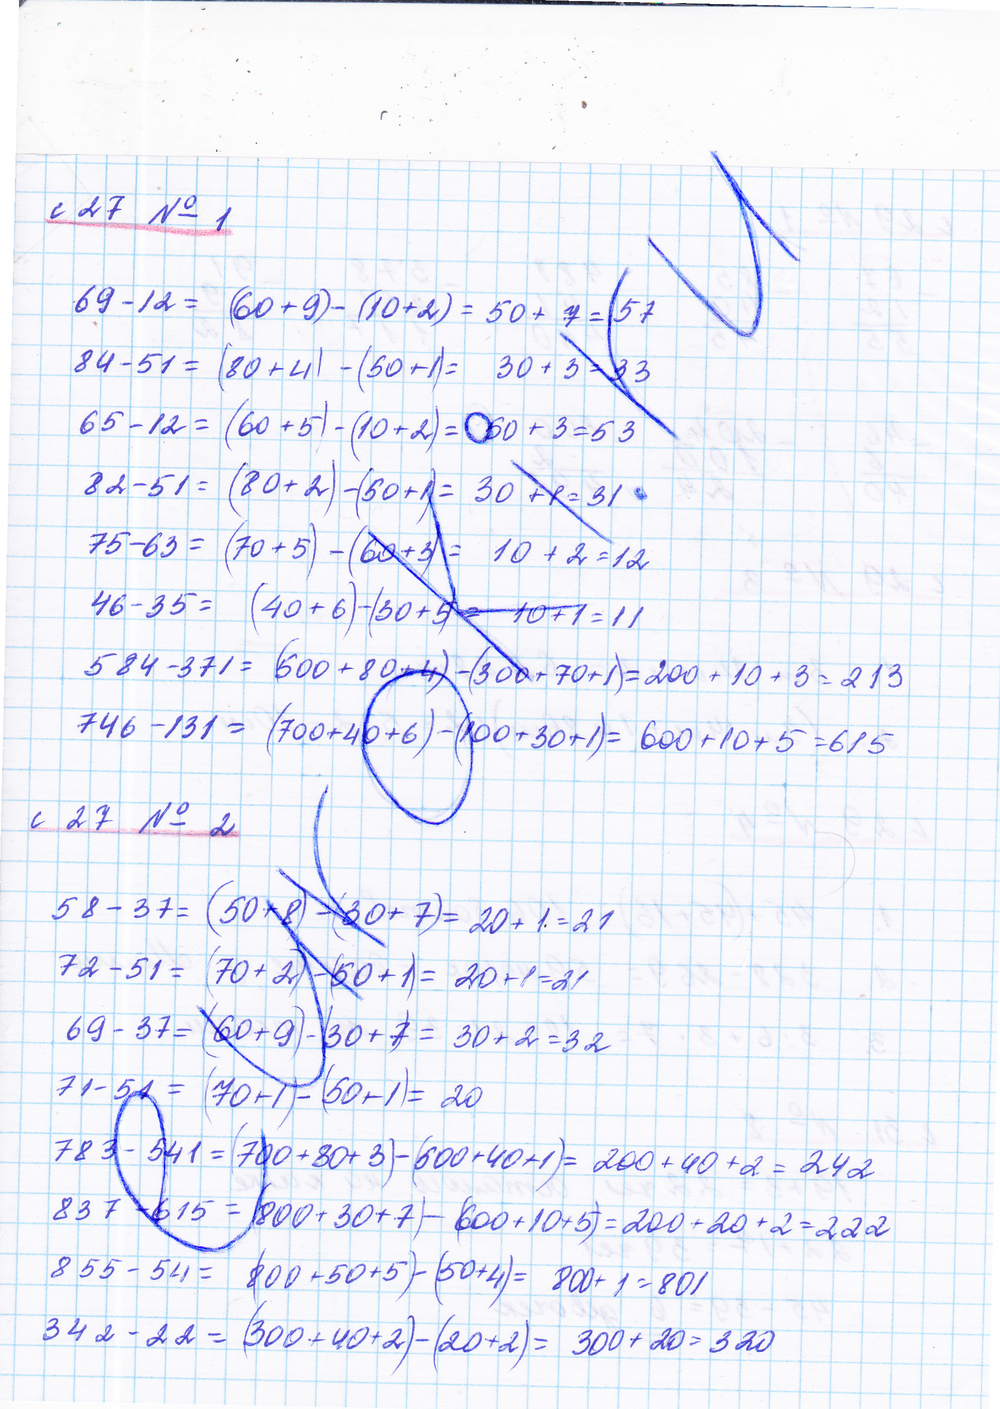 с 27 № 1
69-12= (60+9)-(10+2)= 50+7=57
84-51= (80+4)-(50+1)= 30+3=33
65-12= (60+5)-(10+2)= 50+3=53
82-51= (80+2)-(50+1)= 30+1=31
75-63= (70+5)-(60+3)= 10+2=12
46-35= (40+6)-(30+5)= 10+1=11
584-371= (500+80+4)-(300+70+1)=200+10+3=213
746-131= (700+40+6)-(100+30+1)= 600+10+5=615
с 27 № 2
58-37= (50+8)-(30+7)= 20+1=21
72-51= (70+2)-(50+1)= 20+1=21
69-37= (60+9)-(30+7= 30+2=32
71-51= (70+1)-(50+1)= 20
783-541=(700+80+3)-(500+40+1)= 200+40+2=242
837-615=(800+30+7)-(600+10+5)=200+20+2=222
855-54= (800+50+5)-(50+4)= 800+1=801
342-22= (300+40+2)-(20+2)= 300+20=320